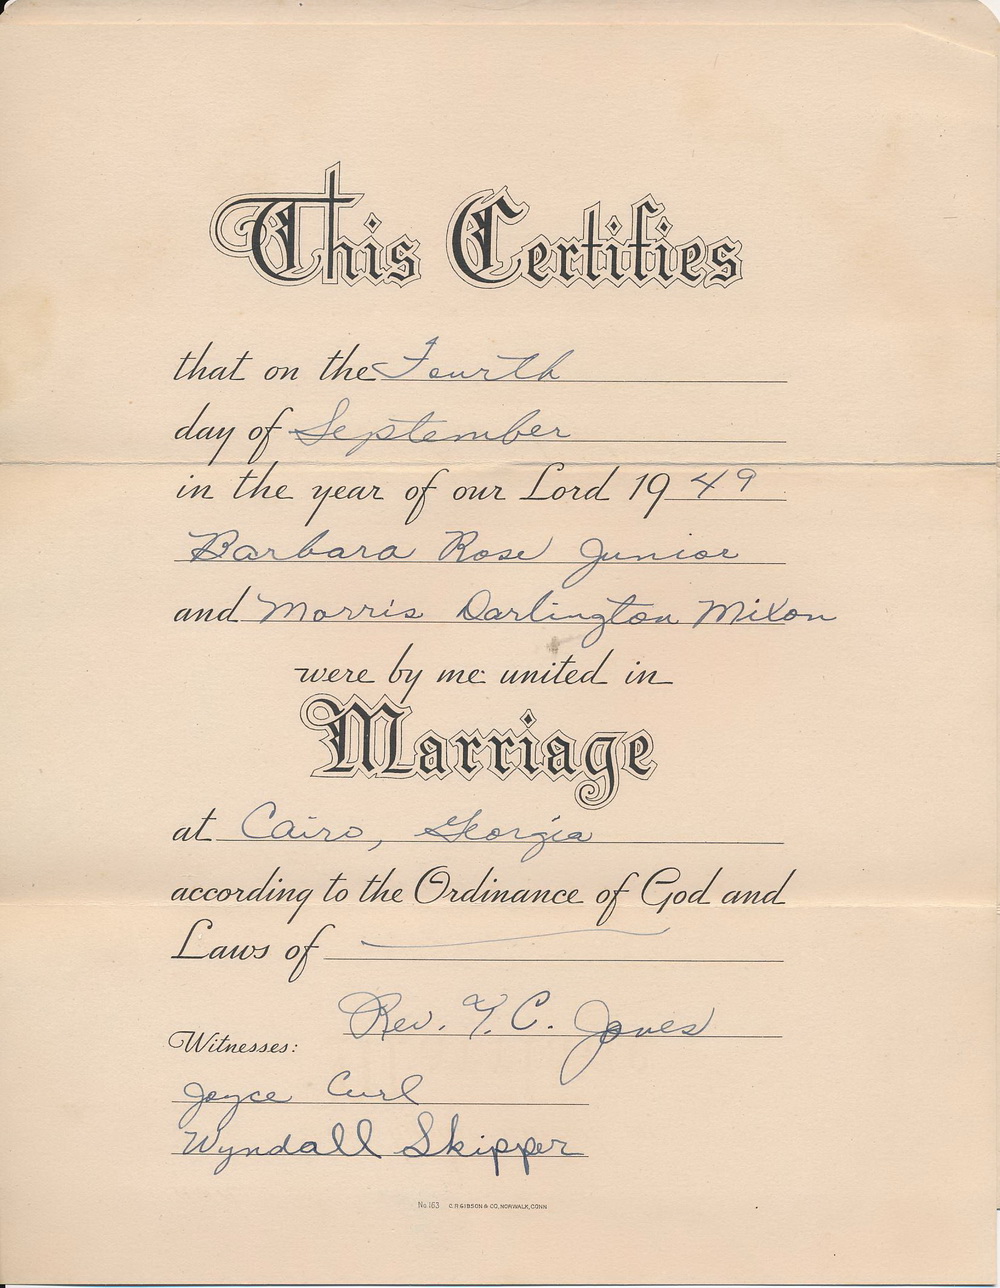 This Certifies
that on the Fourth
day of September
in the year of our Lord 19 49
Barbara Rose Junior
and Morris Darlington Mixon
were by me united in
Marriage
at Cairo, Georgia
according to the Ordinance of God and
Laws of
Rev. Y. C. Jones
Witnesses:
Joyce Curl
Wyndall Skipper
No 163 C.R. GIBSON & CO, NORWALK, CONN